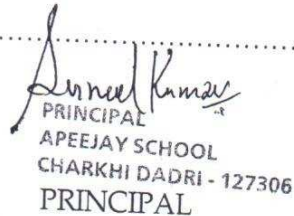 Suneel Kumar
PRINCIPAL
APEEJAY SCHOOL
CHARKHI DADRI - 127306
PRINCIPAL